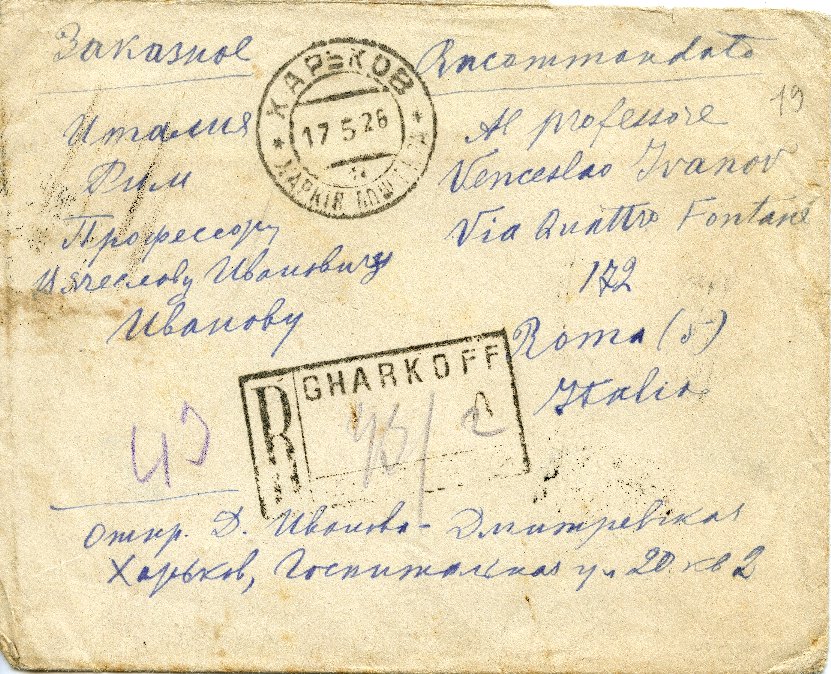 Заказное
Италия
Рим
Профессору
Вячеславу Ивановичу
Иванову
Raccommandato
Al professore
Venceslao Ivanov
Via Quattro Fontane
172
Roma (5)
Italia
19
ХАРЬКОВ
17 5 26
ХАРКІВ ПОШТ
R GHARKOFF
A
43
Откр. Д. Иванова-Дмитревская
Харьков, Госпитальная ул 20. кв 2